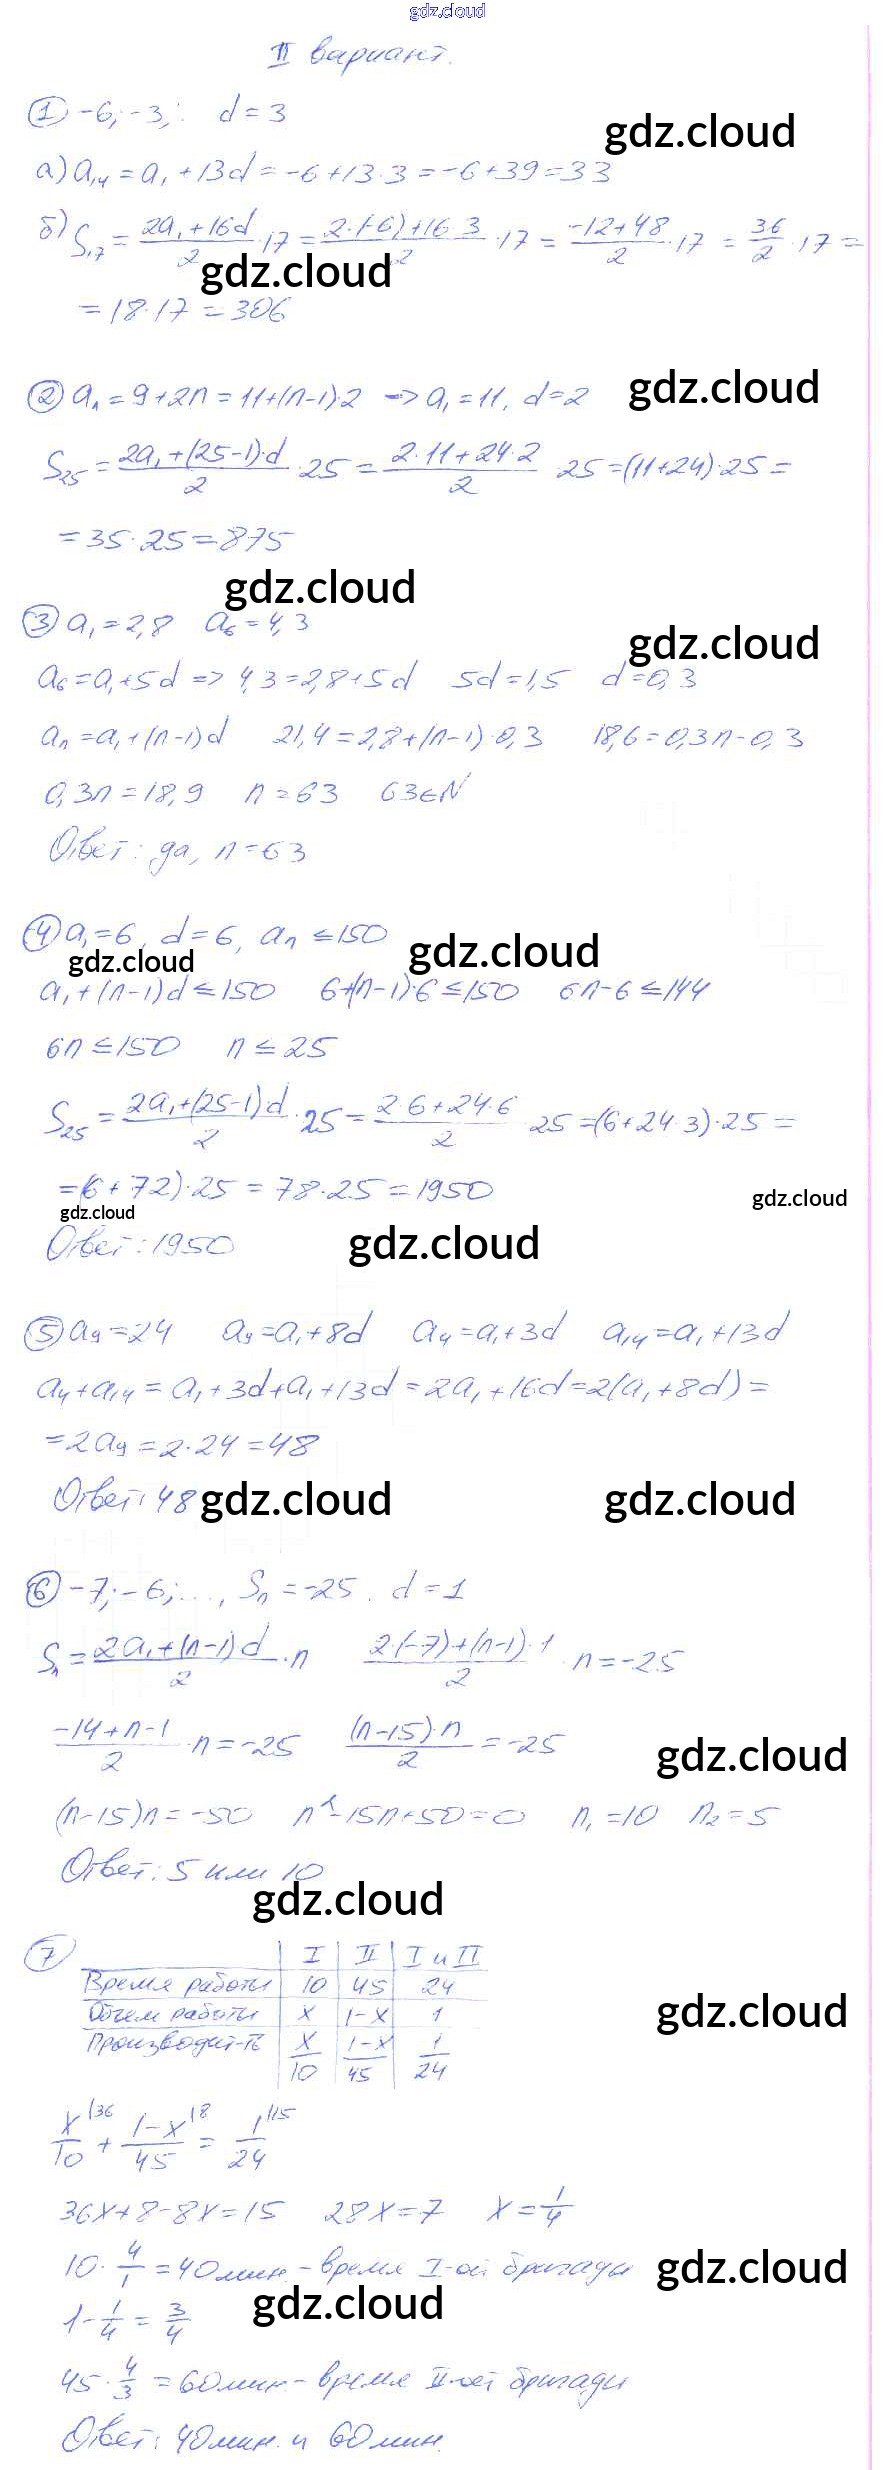 gdz.cloud
II вариант.
① -6; -3; : d = 3
gdz.cloud
а) a₁₄ = a₁ + 13d = -6 + 13·3 = -6 + 39 = 33
б) S₁₇ = (2a₁ + 16d)/2 · 17 = (2·(-6) + 16·3)/2 · 17 = (-12 + 48)/2 · 17 = 36/2 · 17 =
gdz.cloud
= 18·17 = 306
② aₙ = 9 + 2n = 11 + (n-1)·2 => a₁ = 11, d = 2
gdz.cloud
S₂₅ = (2a₁ + (25-1)·d)/2 · 25 = (2·11 + 24·2)/2 · 25 = (11 + 24)·25 =
= 35·25 = 875
gdz.cloud
③ a₁ = 2,8 a₆ = 4,3
gdz.cloud
a₆ = a₁ + 5d => 4,3 = 2,8 + 5d 5d = 1,5 d = 0,3
aₙ = a₁ + (n-1)d 21,4 = 2,8 + (n-1)·0,3 18,6 = 0,3n - 0,3
0,3n = 18,9 n = 63 63 ∈ N
Ответ: да, n = 63
④ a₁ = 6, d = 6, aₙ ≤ 150
gdz.cloud
gdz.cloud
a₁ + (n-1)d ≤ 150 6 + (n-1)·6 ≤ 150 6n - 6 ≤ 144
6n ≤ 150 n ≤ 25
S₂₅ = (2a₁ + (25-1)d)/2 · 25 = (2·6 + 24·6)/2 · 25 = (6 + 24·3)·25 =
= (6 + 72)·25 = 78·25 = 1950
gdz.cloud
gdz.cloud
Ответ: 1950
gdz.cloud
⑤ a₉ = 24 a₉ = a₁ + 8d a₄ = a₁ + 3d a₁₄ = a₁ + 13d
a₄ + a₁₄ = a₁ + 3d + a₁ + 13d = 2a₁ + 16d = 2(a₁ + 8d) =
= 2a₉ = 2·24 = 48
Ответ: 48
gdz.cloud
gdz.cloud
⑥ -7; -6; ..., Sₙ = -25. d = 1
Sₙ = (2a₁ + (n-1)d)/2 · n (2·(-7) + (n-1)·1)/2 · n = -25
(-14 + n - 1)/2 · n = -25 ((n-15)·n)/2 = -25
gdz.cloud
(n-15)n = -50 n² - 15n + 50 = 0 n₁ = 10 n₂ = 5
Ответ: 5 или 10
gdz.cloud
⑦
I II I и II
Время работы 10 45 24
Объем работы x 1-x 1
gdz.cloud
Производит-ть x/10 (1-x)/45 1/24
x/10 |36 + (1-x)/45 |8 = 1/24 |15
36x + 8 - 8x = 15 28x = 7 x = 1/4
10 · 4/1 = 40 мин. - время I-ой бригады
gdz.cloud
gdz.cloud
1 - 1/4 = 3/4
45 · 4/3 = 60 мин. - время II-ой бригады
Ответ: 40 мин. и 60 мин.